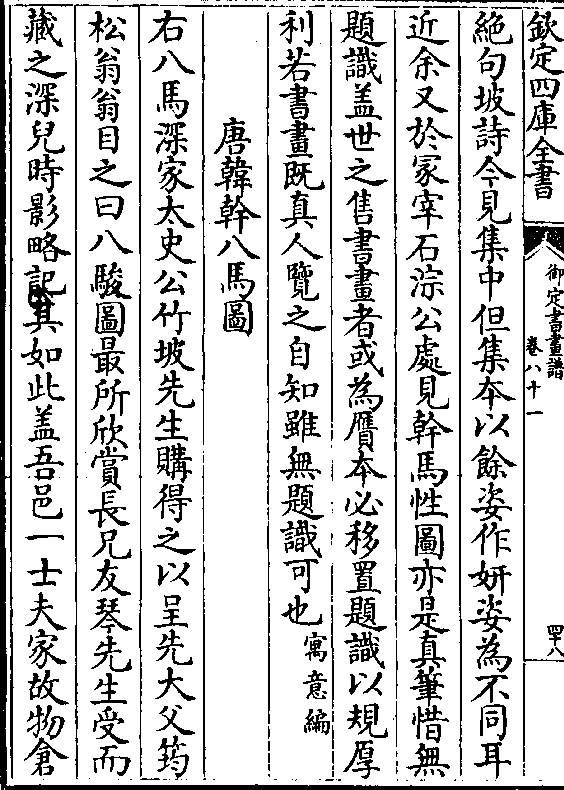 欽定四庫全書
御定書畫譜
卷八十一
四十八
絶句坡詩今見集中但集本以餘姿作妍姿為不同耳
近余又於冢宰石淙公處見幹馬性圖亦是真筆惜無
題識盖世之售書畫者或為贋本必移置題識以規厚
利若書畫既真人覽之自知雖無題識可也寓意編
唐韓幹八馬圖
右八馬深家太史公竹坡先生購得之以呈先大父筠
松翁翁目之曰八駿圖最所欣賞長兄友琴先生受而
藏之深兒時影略記其如此盖吾邑一士夫家故物倉